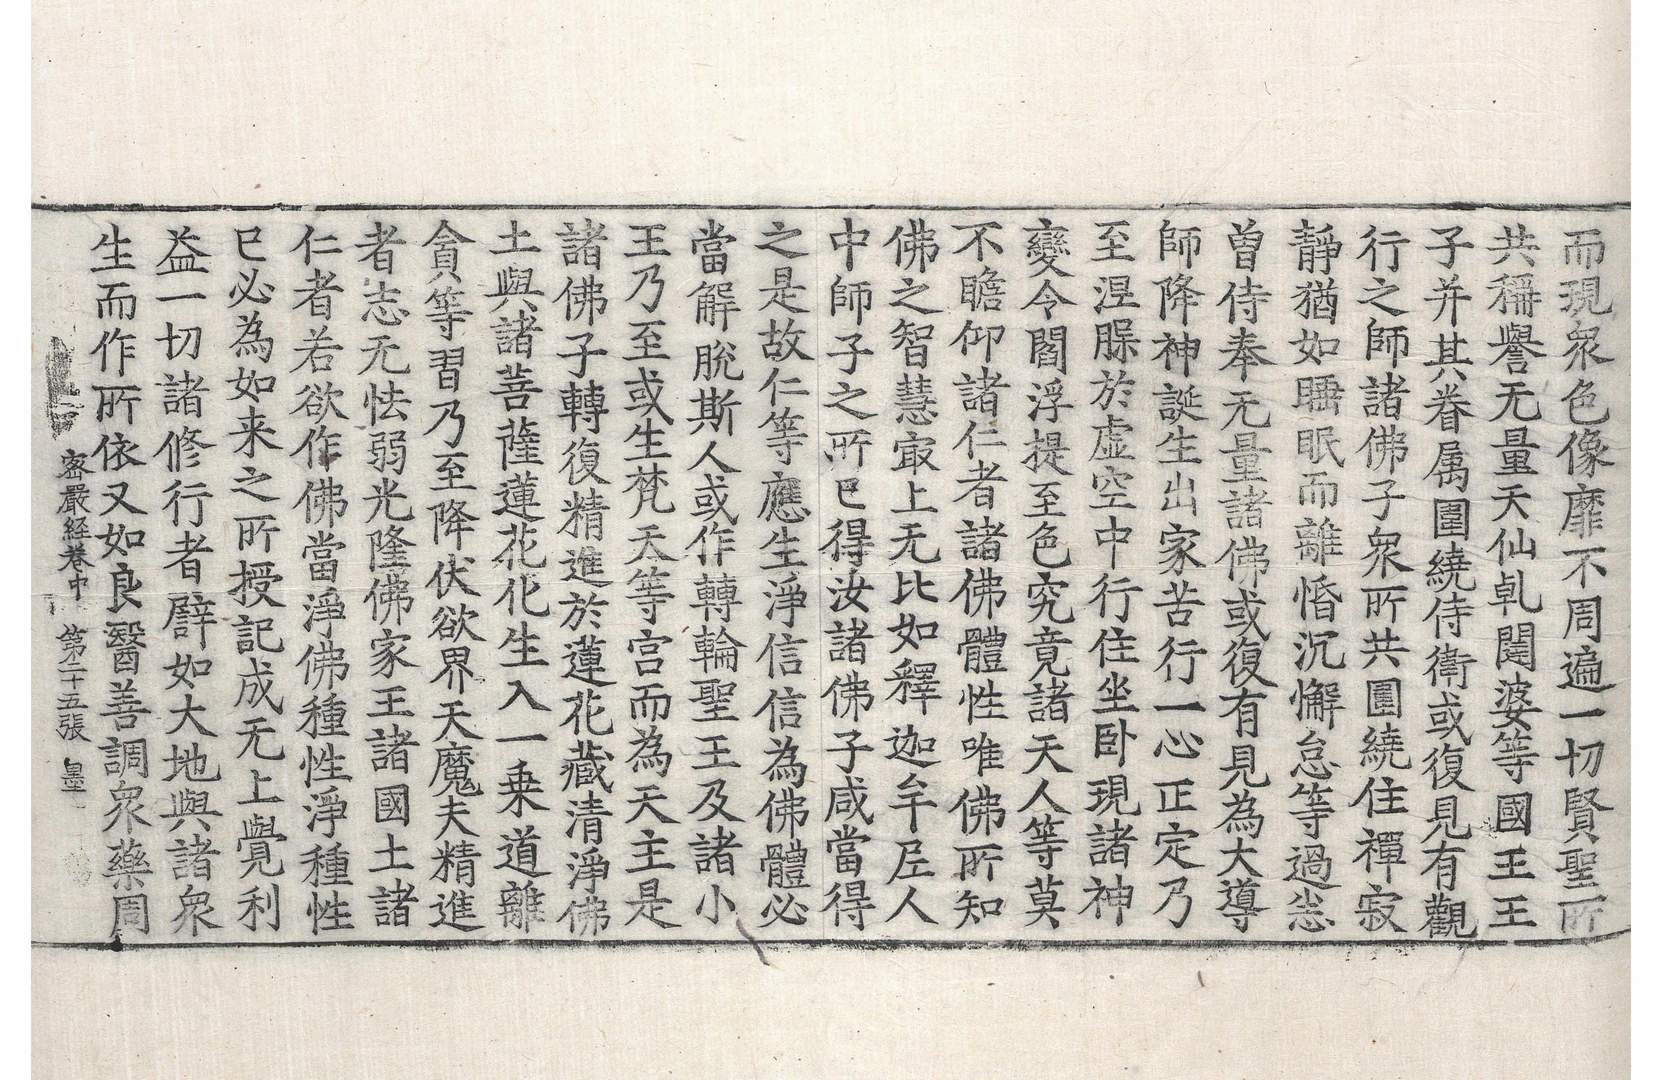 而現衆色像靡不周遍一切賢聖所
共稱譽无量天仙乹闥婆等國王王
子并其眷属圍繞侍衛或復見有觀
行之師諸佛子衆所共圍繞住禪寂
靜猶如睡眠而離惛沉懈怠等過患
曽侍奉无量諸佛或復有見為大導
師降神誕生出家苦行一心正定乃
至涅槃於虚空中行住坐卧現諸神
變令閻浮提至色究竟諸天人等莫
不瞻仰諸仁者諸佛體性唯佛所知
佛之智慧㝡上无比如釋迦牟𡰱人
中師子之所巳得汝諸佛子咸當得
之是故仁等應生淨信信為佛體必
當解脫斯人或作轉輪聖王及諸小
王乃至或生梵天等宫而為天主是
諸佛子轉復精進於蓮花藏清淨佛
土與諸菩薩蓮花化生入一乗道離
貪等習乃至降伏欲界天魔夫精進
者志无怯弱光隆佛家王諸國土諸
仁者若欲作佛當淨佛種性淨種性
巳必為如来之所授記成无上覺利
益一切諸修行者譬如大地與諸衆
生而作所依又如良醫善調衆藥周
宻嚴經卷中　第二十五張　墨